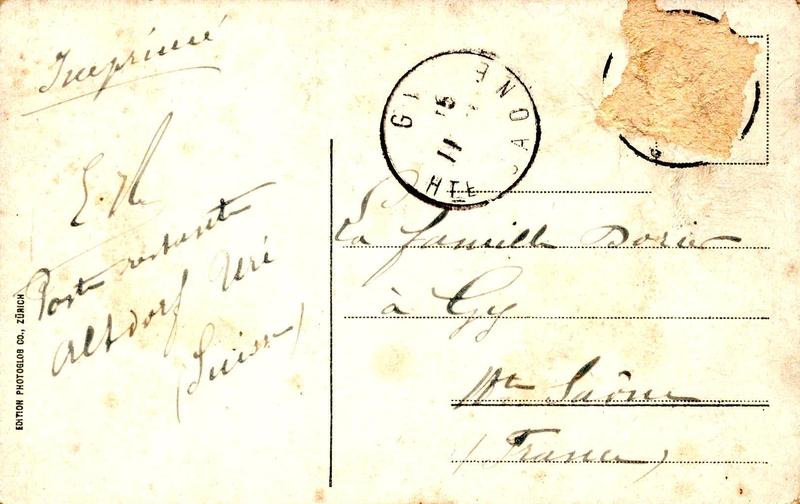 Imprimé
Poste restante
Altdorf Uri
(Suisse)
EDITION PHOTOGLOB CO., ZÜRICH
GY
15
11
HTE SAONE
La famille Dorier
à Gy
Hte Saône
(France)